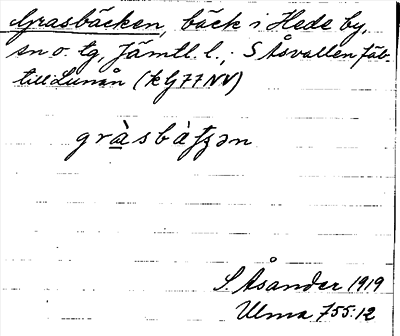 Grasbäcken, bäck i Hede by,
sn o. tg, Jämtl. l.; S Åsvallen fäb.
till Lunån (kG77NV)
gràsbàʈʂən
S. Åsander 1919
Ulma 755:12